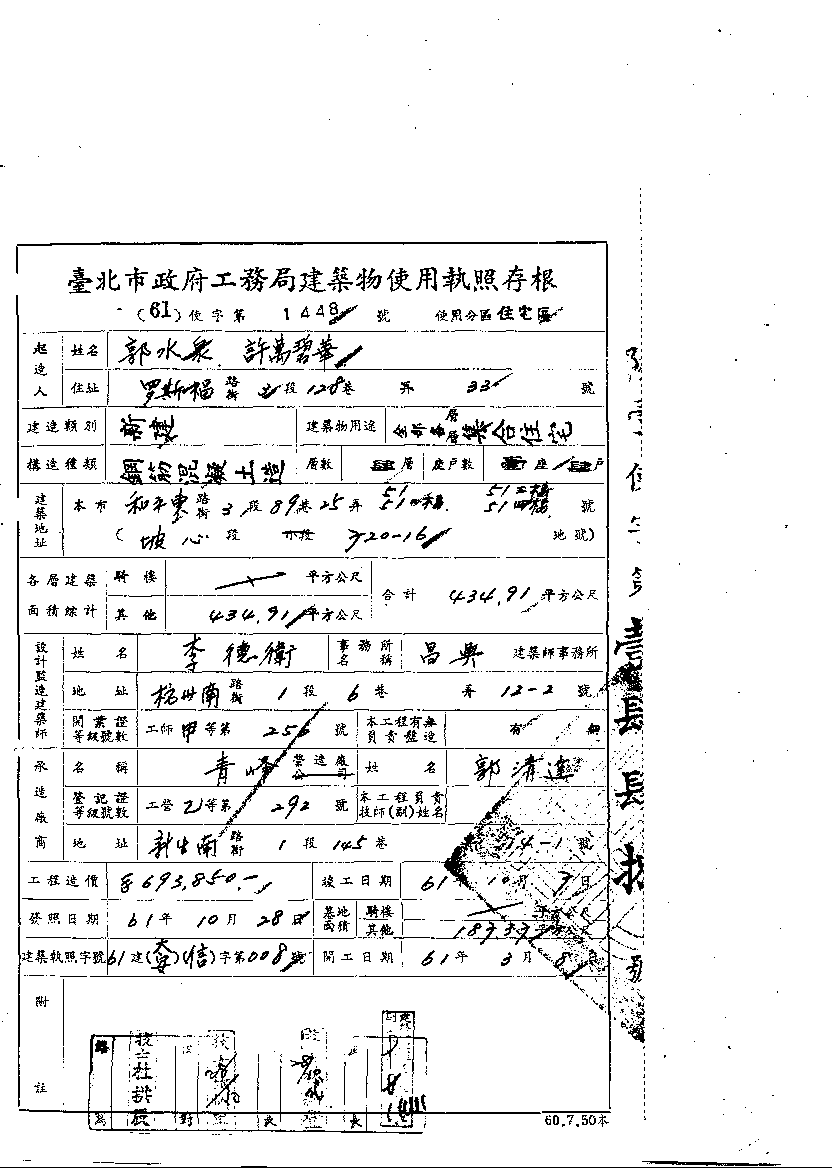 臺北市政府工務局建築物使用執照存根
(61)使字第 1448 號 使用分區 住宅區
起造人 姓名 郭水泉 許萬碧華
住址 罗斯福 路街 段 128 巷 弄 33 號
建造類別 新建 建築物用途 全部各層 集合住宅
構造種類 鋼筋混凝土造 層數 肆 層 座戶數 壹 座 肆 戶
建築地址 本市 和平東 路街 3 段 89 巷 25 弄 51 51 號
( 坡心 段 小段 720-16 地號)
各層建築面積綜計 騎樓 平方公尺 合計 434.91 平方公尺
其他 434.91 平方公尺
設計監造建築師 姓名 李德衛 事務所名稱 昌興 建築師事務所
地址 杭州南 路街 1 段 6 巷 弄 12-2 號
開業證等級號數 工師 甲 等第 256 號 本工程有無負責監造 有 無
承造廠商 名稱 青峰 營造廠公司 姓名 郭清連
登記證等級號數 工營 乙 等第 292 號 本工程負責技師(副)姓名
地址 新生南 路街 1 段 145 巷 14-1 號
工程造價 693,850.- 竣工日期 61 年 10 月 7 日
發照日期 61 年 10 月 28 日 基地面積 騎樓 平方公尺
其他 187.37 平方公尺
建築執照字號 61 建(大安)(信)字第 008 號 開工日期 61 年 3 月 8 日
附註
60.7.50本